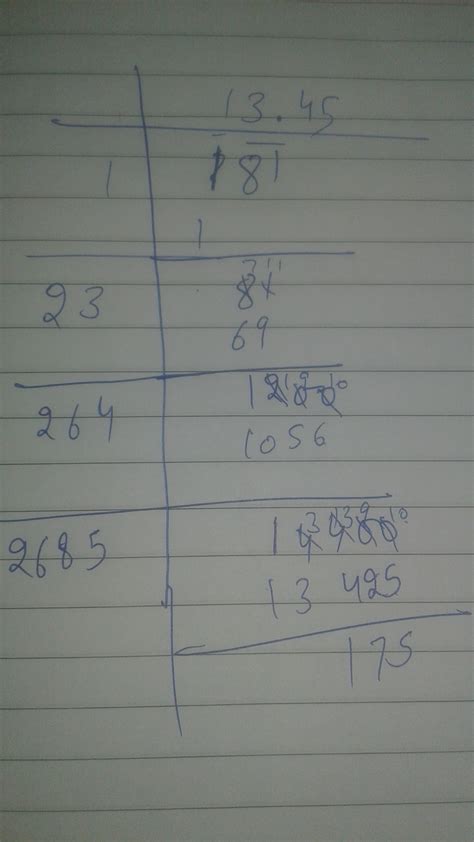 13.45
1 181
1
23 81
69
264 1200
1056
2685 14400
13 425
175